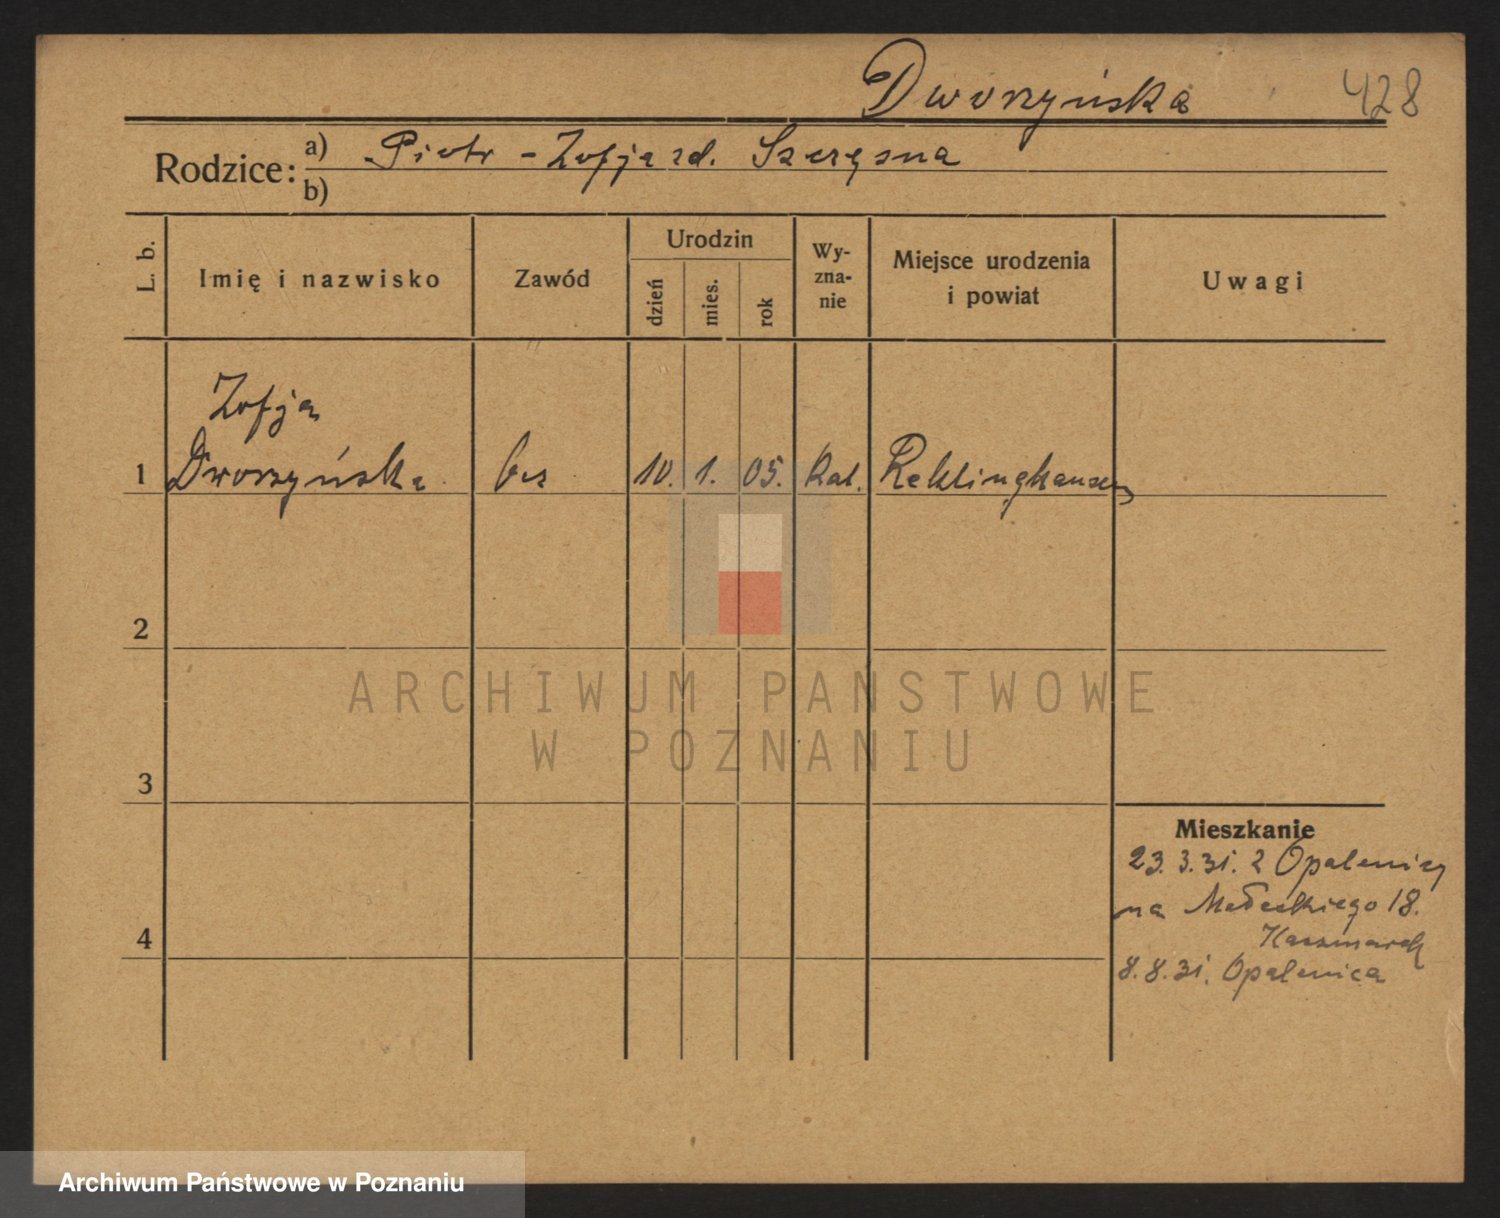 Dworzyńska 428
Rodzice: a) Piotr - Zofja zd. Szczęsna
b)
L. b. Imię i nazwisko Zawód Urodzin dzień mies. rok Wy-zna-nie Miejsce urodzenia i powiat Uwagi
Zofja
1 Dworzyńska bez 10. 1. 05. kat. Reklinghausen
2
ARCHIWUM PAŃSTWOWE
W POZNANIU
3
Mieszkanie
23.3.31. z Opalenicy
na Małeckiego 18.
Kaczmarek
4
8.8.31. Opalenica
Archiwum Państwowe w Poznaniu